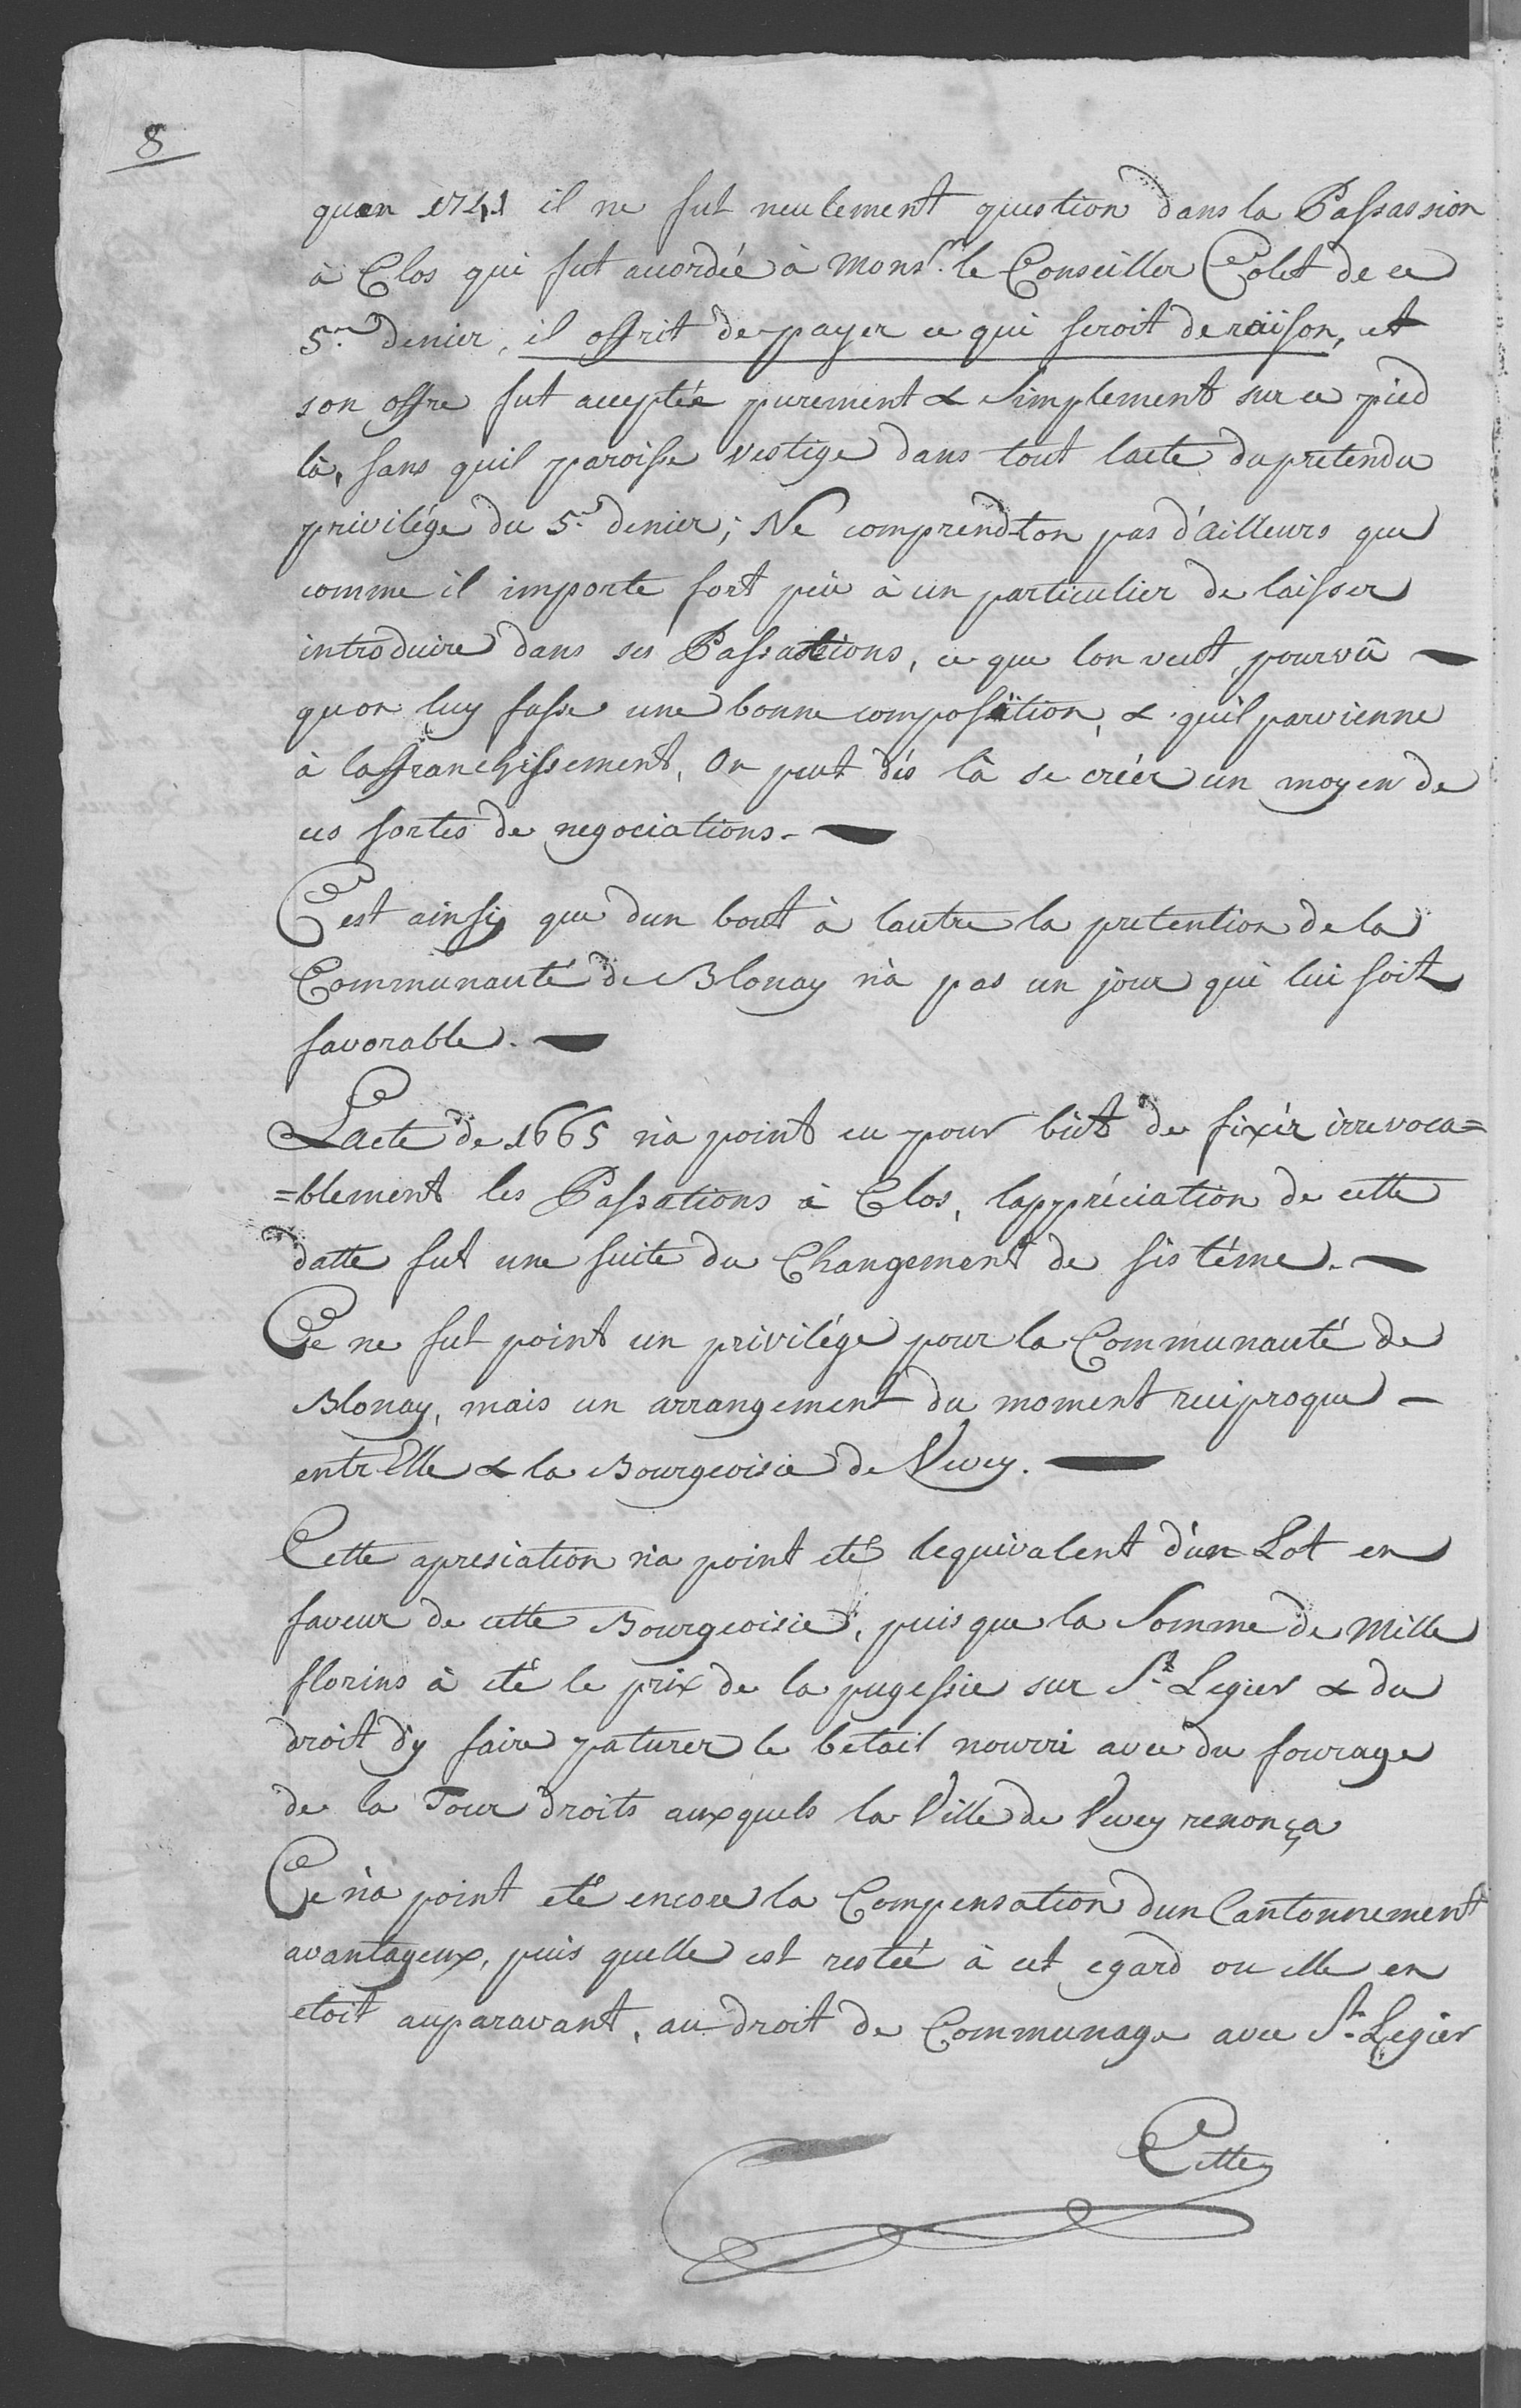 8
quen 1741 il ne fut neulement question dans la Passassion
à Clos qui fut acordée à Mons.r le Conseiller Colet de ce
5.e denier, il offrit de payer ce qui seroit de raiison, et
son offre fut acceptée purement & Simplement sur ce pied
là, sans quil paroisse vestige dans tout lacte du pretendu
privilége du 5.e denier; Ne comprend-ton pas d'ailleurs que
comme il importe fort peu à un particulier de laisser
introduire dans ses Passations, ce que lon veut, pourvû
quon luy fasse une bonne composition, & quil parvienne
à laffranchissement, On peut dés là se créer un moyen de
ces sortes de negociations.
C'est ainsi, que dun bout à lautre la pretention de la
Communauté de Blonay n'a pas un jour qui lui soit
favorable.
Lacte de 1665 n'a point eu pour bût de fixér irrevoca=
=blement les Passations à Clos, lappréciation de cette
datte fut une suite du Changement de sistéme.
Ce ne fut point un privilége pour la Communauté de
Blonay, mais un arrangement du moment reciproque
entr'Elle & la Bourgeoisie de Vevey.
Cette apresiation n'a point eté lequivalent d'un Lot en
faveur de cette Bourgeoisie, puis que la Somme de Mille
florins à eté le prix de la pugessie sur S.t Legier & du
droit d'y faire paturer le betail nourri avec du fourage
de la Tour droits auxquels la Ville de Vevey renonça
Ce n'a point eté encore la Compensation dun Cantonnement
avantageux, puis quelle est restée à cet egard ou elle en
etoit auparavant, au droit de Communage avec S.t Legier
Cette